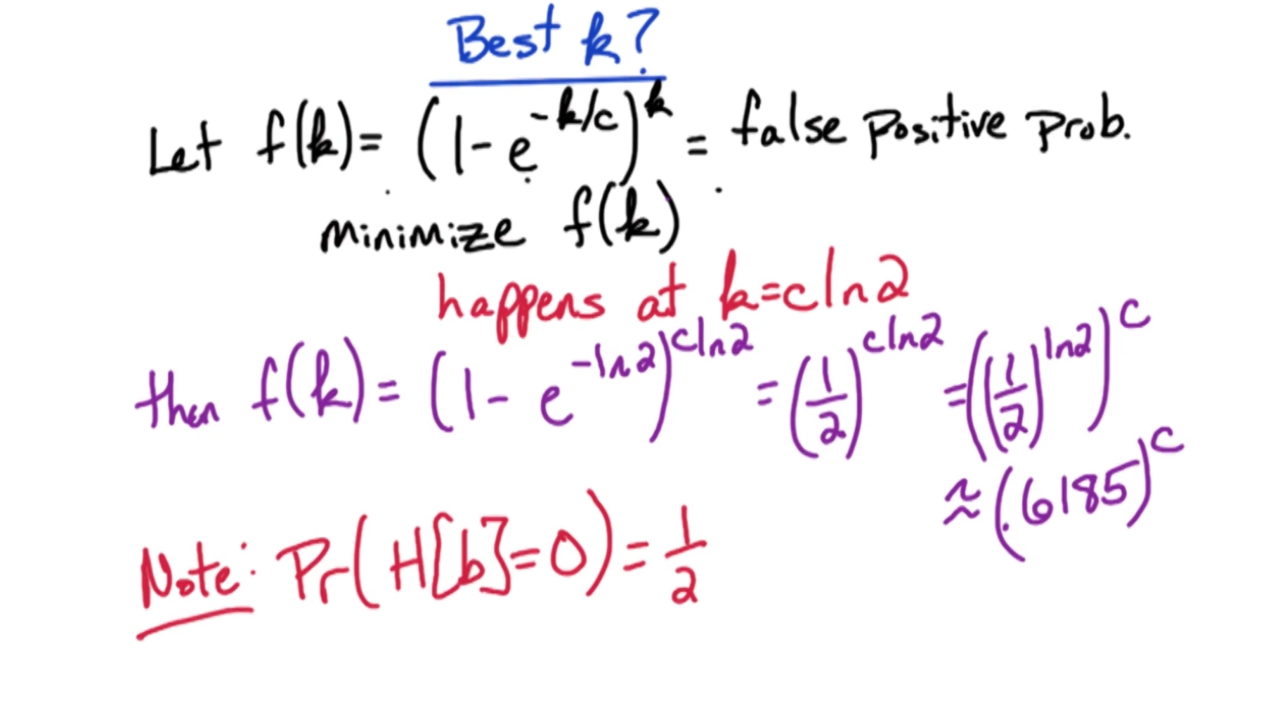 Best k?
Let f(k) = (1 - e^{-k/c})^k = false positive prob.
minimize f(k)
happens at k = c ln 2
then f(k) = (1 - e^{-ln 2})^{c ln 2} = (1/2)^{c ln 2} = ((1/2)^{ln 2})^c
≈ (.6185)^c
Note: Pr(H[b] = 0) = 1/2